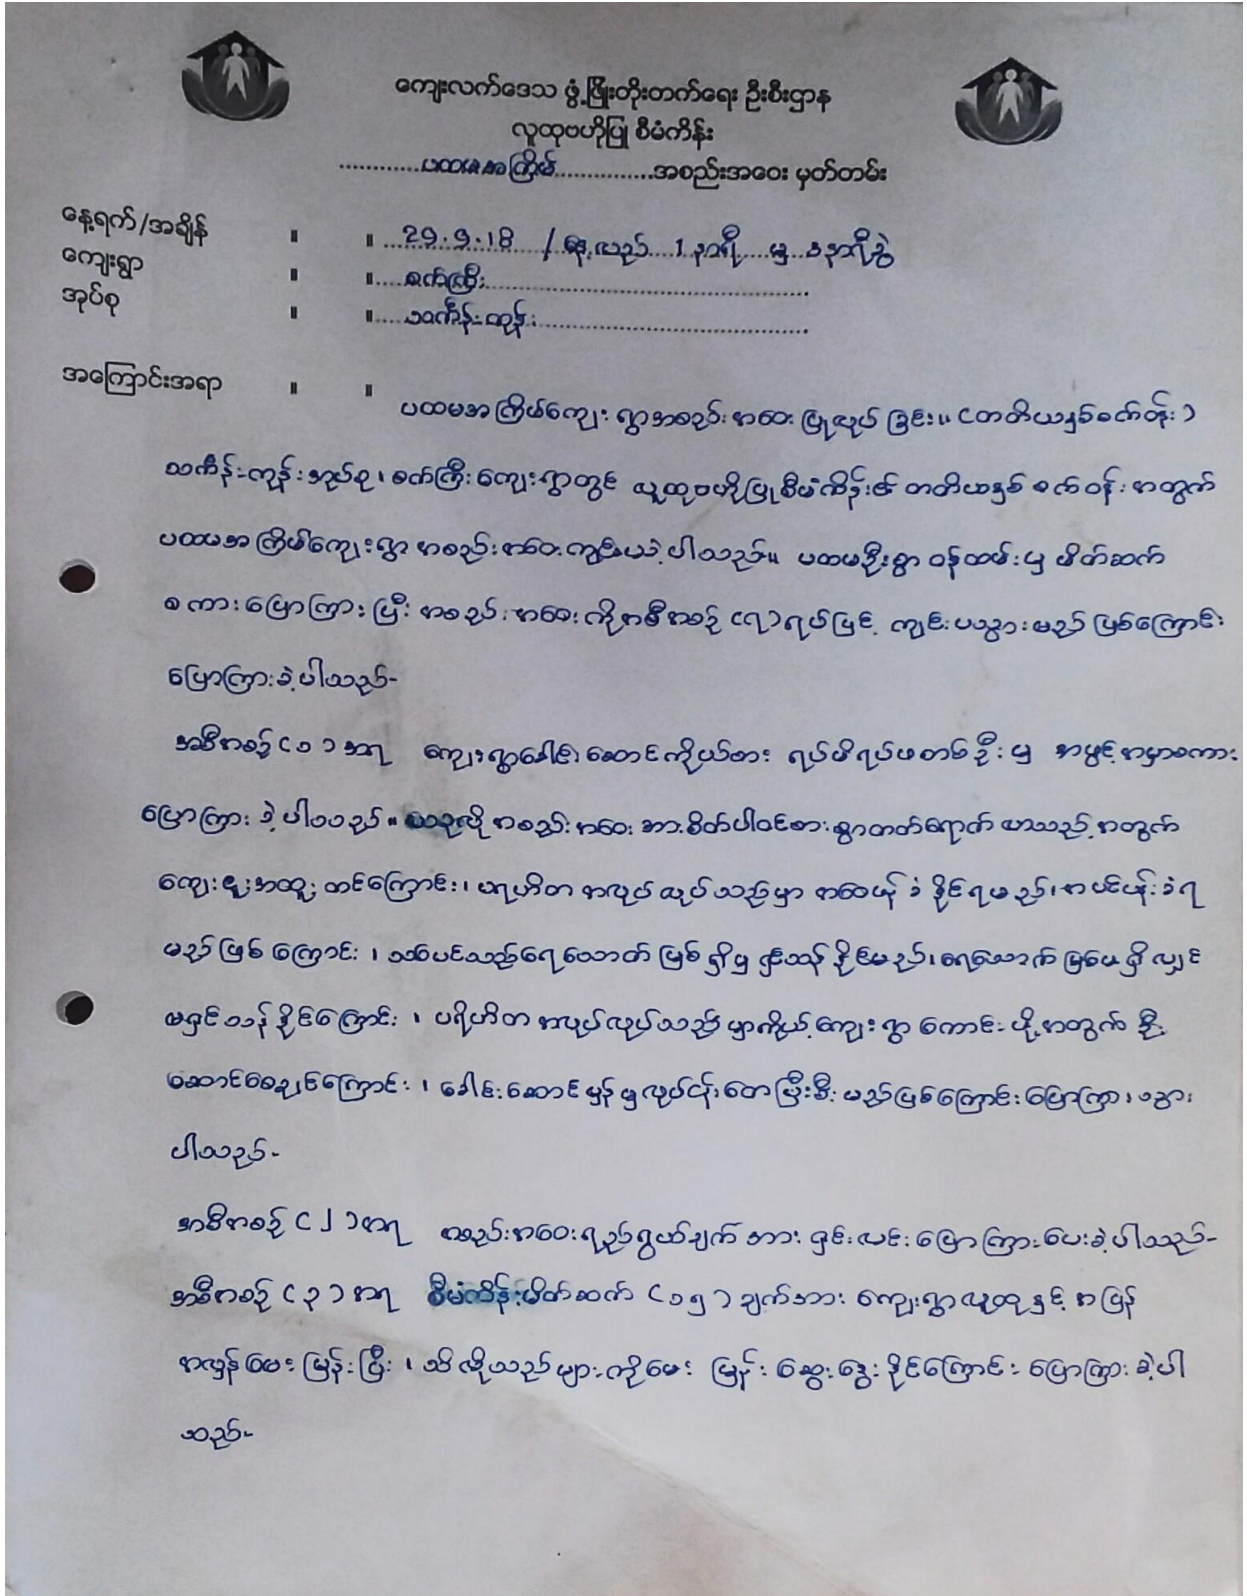 ကျေးလက်ဒေသ ဖွံ့ဖြိုးတိုးတက်ရေး ဦးစီးဌာန
လူထုဗဟိုပြု စီမံကိန်း
............ပထမအကြိမ်...............အစည်းအဝေး မှတ်တမ်း
နေ့ရက်/အချိန် ။ ။ 29.9.18 / နေ့လည် 1 နာရီ မှ ၃နာရီခွဲ
ကျေးရွာ ။ ။ စက်ကြီး
အုပ်စု ။ ။ သင်္ကန်းကုန်း
အကြောင်းအရာ ။ ။ ပထမအကြိမ်ကျေးရွာအစည်းအဝေး ပြုလုပ်ခြင်း။ (တတိယနှစ်စက်ဝန်း)
သင်္ကန်းကုန်းအုပ်စု၊ စက်ကြီးကျေးရွာတွင် လူထုဗဟိုပြုစီမံကိန်း၏ တတိယနှစ် စက်ဝန်းအတွက်
ပထမအကြိမ်ကျေးရွာ အစည်းအဝေးကျင်းပခဲ့ပါသည်။ ပထမဦးစွာ ဝန်ထမ်းမှ မိတ်ဆက်
စကားပြောကြားပြီး အစည်းအဝေးကိုအစီအစဉ် (၇)ရပ်ဖြင့် ကျင်းပသွားမည်ဖြစ်ကြောင်း
ပြောကြားခဲ့ပါသည်-
အစီအစဉ်(၁)အရ ကျေးရွာခေါင်းဆောင်ကိုယ်စား ရပ်မိရပ်ဖတစ်ဦးမှ အဖွင့်အမှာစကား
ပြောကြားခဲ့ပါသည်။ ယခုလို အစည်းအဝေးအားစိတ်ပါဝင်စားစွာတက်ရောက်လာသည့်အတွက်
ကျေးဇူးအထူးတင်ကြောင်း၊ ပရဟိတ အလုပ်လုပ်သည်မှာ အဝေဖန်ခံနိုင်ရမည်၊ အပင်ပန်းခံရ
မည်ဖြစ်ကြောင်း၊ သစ်ပင်သည်ရေသောက်မြစ်ရှိမှ ရှင်သန်နိုင်မည်၊ ရေသောက်မြစ်မရှိလျှင်
မရှင်သန်နိုင်ကြောင်း၊ ပရဟိတ အလုပ်လုပ်သည်မှာကိုယ့်ကျေးရွာကောင်းဖို့အတွက် ဦး
ဆောင်စေချင်ကြောင်း၊ ခေါင်းဆောင်မှန်မှလုပ်ငန်းတေပြီးစီးမည်ဖြစ်ကြောင်းပြောကြားသွား
ပါသည်-
အစီအစဉ် (၂)အရ အစည်းအဝေးရည်ရွယ်ချက်အား ရှင်းလင်းပြောကြားပေးခဲ့ပါသည်-
အစီအစဉ် (၃)အရ စီမံကိန်းမိတ်ဆက် (၁၅)ချက်အား ကျေးရွာလူထုနှင့် အပြန်
အလှန်မေးမြန်းပြီး၊ သိလိုသည်များကိုမေးမြန်းဆွေးနွေးနိုင်ကြောင်း ပြောကြားခဲ့ပါ
သည်-